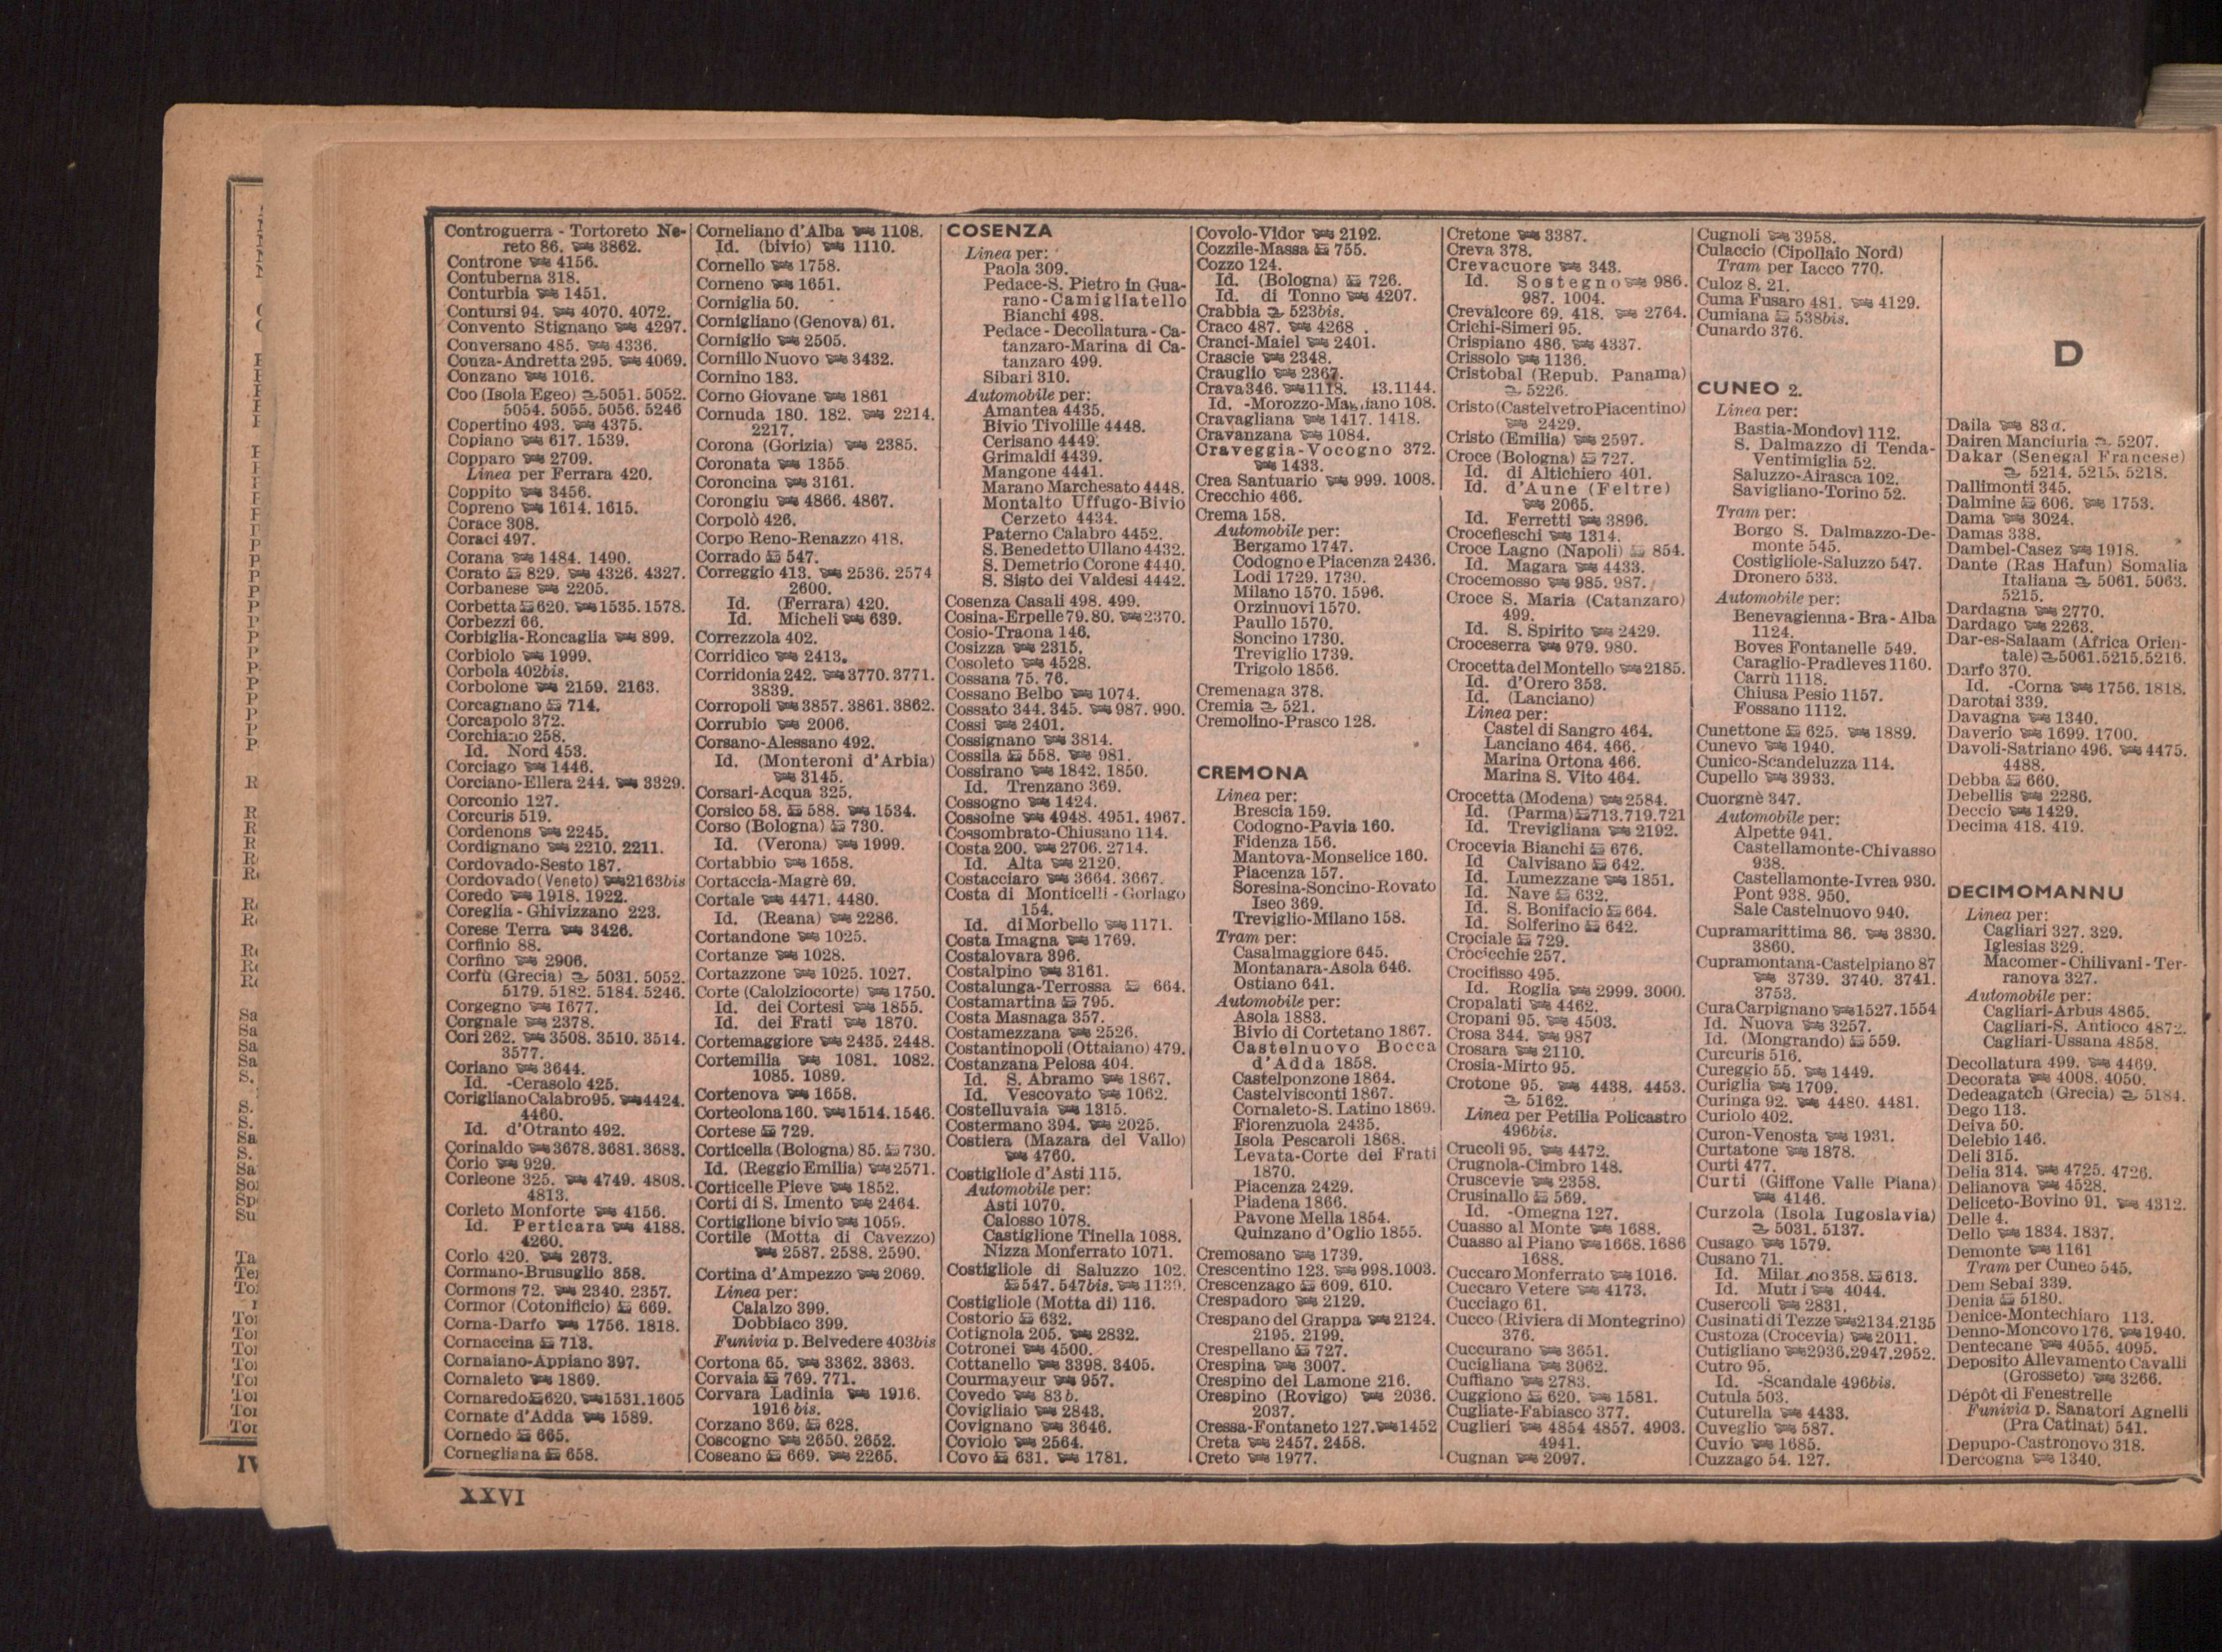 Controguerra - Tortoreto Ne-
reto 86. 3862.
Controne 4156.
Contuberna 318.
Conturbia 1451.
Contursi 94. 4070. 4072.
Convento Stignano 4297.
Conversano 485. 4336.
Conza-Andretta 295. 4069.
Conzano 1016.
Coo (Isola Egeo) 5051. 5052.
5054. 5055. 5056. 5246
Copertino 493. 4375.
Copiano 617. 1539.
Copparo 2709.
Linea per Ferrara 420.
Coppito 3456.
Copreno 1614. 1615.
Corace 308.
Coraci 497.
Corana 1484. 1490.
Corato 829. 4326. 4327.
Corbanese 2205.
Corbetta 620. 1535. 1578.
Corbezzi 66.
Corbiglia-Roncaglia 899.
Corbiolo 1999.
Corbola 402bis.
Corbolone 2159. 2163.
Corcagnano 714.
Corcapolo 372.
Corchiano 258.
Id. Nord 453.
Corciago 1446.
Corciano-Ellera 244. 3329.
Corconio 127.
Corcuris 519.
Cordenons 2245.
Cordignano 2210. 2211.
Cordovado-Sesto 187.
Cordovado (Veneto) 2163bis
Coredo 1918. 1922.
Coreglia - Ghivizzano 223.
Corese Terra 3426.
Corfinio 88.
Corfino 2906.
Corfù (Grecia) 5031. 5052.
5179. 5182. 5184. 5246.
Corgegno 1677.
Corgnale 2378.
Cori 262. 3508. 3510. 3514.
3577.
Coriano 3644.
Id. -Cerasolo 425.
Corigliano Calabro 95. 4424.
4460.
Id. d'Otranto 492.
Corinaldo 3678. 3681. 3683.
Corio 929.
Corleone 325. 4749. 4808.
4813.
Corleto Monforte 4156.
Id. Perticara 4188.
4260.
Corlo 420. 2673.
Cormano-Brusuglio 358.
Cormons 72. 2340. 2357.
Cormor (Cotonificio) 669.
Corna-Darfo 1756. 1818.
Cornaccina 713.
Cornaiano-Appiano 397.
Cornaleto 1869.
Cornaredo 620. 1531. 1605
Cornate d'Adda 1589.
Cornedo 665.
Cornegliana 658.
Corneliano d'Alba 1108.
Id. (bivio) 1110.
Cornello 1758.
Corneno 1651.
Corniglia 50.
Cornigliano (Genova) 61.
Corniglio 2505.
Cornillo Nuovo 3432.
Cornino 183.
Corno Giovane 1861
Cornuda 180. 182. 2214.
2217.
Corona (Gorizia) 2385.
Coronata 1355.
Coroncina 3161.
Corongiu 4866. 4867.
Corpolò 426.
Corpo Reno-Renazzo 418.
Corrado 547.
Correggio 413. 2536. 2574
2600.
Id. (Ferrara) 420.
Id. Micheli 639.
Correzzola 402.
Corridico 2413.
Corridonia 242. 3770. 3771.
3839.
Corropoli 3857. 3861. 3862.
Corrubio 2006.
Corsano-Alessano 492.
Id. (Monteroni d'Arbia)
3145.
Corsari-Acqua 325.
Corsico 58. 588. 1534.
Corso (Bologna) 730.
Id. (Verona) 1999.
Cortabbio 1658.
Cortaccia-Magrè 69.
Cortale 4471. 4480.
Id. (Reana) 2286.
Cortandone 1025.
Cortanze 1028.
Cortazzone 1025. 1027.
Corte (Calolziocorte) 1750.
Id. dei Cortesi 1855.
Id. dei Frati 1870.
Cortemaggiore 2435. 2448.
Cortemilia 1081. 1082.
1085. 1089.
Cortenova 1658.
Corteolona 160. 1514. 1546.
Cortese 729.
Corticella (Bologna) 85. 730.
Id. (Reggio Emilia) 2571.
Corticelle Pieve 1852.
Corti di S. Imento 2464.
Cortiglione bivio 1059.
Cortile (Motta di Cavezzo)
2587. 2588. 2590.
Cortina d'Ampezzo 2069.
Linea per:
Calalzo 399.
Dobbiaco 399.
Funivia p. Belvedere 403bis
Cortona 65. 3362. 3363.
Corvaia 769. 771.
Corvara Ladinia 1916.
1916 bis.
Corzano 369. 628.
Coscogno 2650. 2652.
Coseano 669. 2265.
COSENZA
Linea per:
Paola 309.
Pedace-S. Pietro in Gua-
rano-Camigliatello
Bianchi 498.
Pedace-Decollatura-Ca-
tanzaro-Marina di Ca-
tanzaro 499.
Sibari 310.
Automobile per:
Amantea 4435.
Bivio Tivolille 4448.
Cerisano 4449.
Grimaldi 4439.
Mangone 4441.
Marano Marchesato 4448.
Montalto Uffugo-Bivio
Cerzeto 4434.
Paterno Calabro 4452.
S. Benedetto Ullano 4432.
S. Demetrio Corone 4440.
S. Sisto dei Valdesi 4442.
Cosenza Casali 498. 499.
Cosina-Erpelle 79. 80. 2370.
Cosio-Traona 146.
Cosizza 2315.
Cosoleto 4528.
Cossana 75. 76.
Cossano Belbo 1074.
Cossato 344. 345. 987. 990.
Cossi 2401.
Cossignano 3814.
Cossila 558. 981.
Cossirano 1842. 1850.
Id. Trenzano 369.
Cossogno 1424.
Cossoine 4948. 4951. 4967.
Cossombrato-Chiusano 114.
Costa 200. 2706. 2714.
Id. Alta 2120.
Costacciaro 3664. 3667.
Costa di Monticelli - Gorlago
154.
Id. di Morbello 1171.
Costa Imagna 1769.
Costalovara 396.
Costalpino 3161.
Costalunga-Terrossa 664.
Costamartina 795.
Costa Masnaga 357.
Costamezzana 2526.
Costantinopoli (Ottaiano) 479.
Costanzana Pelosa 404.
Id. S. Abramo 1867.
Id. Vescovato 1062.
Costelluvaia 1315.
Costermano 394. 2025.
Costiera (Mazara del Vallo)
4760.
Costigliole d'Asti 115.
Automobile per:
Asti 1070.
Calosso 1078.
Castiglione Tinella 1088.
Nizza Monferrato 1071.
Costigliole di Saluzzo 102.
547. 547bis. 1139.
Costigliole (Motta di) 116.
Costorio 632.
Cotignola 205. 2832.
Cotronei 4500.
Cottanello 3398. 3405.
Courmayeur 957.
Covedo 83 b.
Covigliaio 2843.
Covignano 3646.
Coviolo 2564.
Covo 631. 1781.
Covolo-Vidor 2192.
Cozzile-Massa 755.
Cozzo 124.
Id. (Bologna) 726.
Id. di Tonno 4207.
Crabbia 523bis.
Craco 487. 4268.
Cranci-Maiel 2401.
Crascie 2348.
Crauglio 2367.
Crava 346. 1118. 43.1144.
Id. -Morozzo- 108.
Cravagliana 1417. 1418.
Cravanzana 1084.
Craveggia-Vocogno 372.
1433.
Crea Santuario 999. 1008.
Crecchio 466.
Crema 158.
Automobile per:
Bergamo 1747.
Codogno e Piacenza 2436.
Lodi 1729. 1730.
Milano 1570. 1596.
Orzinuovi 1570.
Paullo 1570.
Soncino 1730.
Treviglio 1739.
Trigolo 1856.
Cremenaga 378.
Cremia 521.
Cremolino-Prasco 128.
CREMONA
Linea per:
Brescia 159.
Codogno-Pavia 160.
Fidenza 156.
Mantova-Monselice 160.
Piacenza 157.
Soresina-Soncino-Rovato
Iseo 369.
Treviglio-Milano 158.
Tram per:
Casalmaggiore 645.
Montanara-Asola 646.
Ostiano 641.
Automobile per:
Asola 1883.
Bivio di Cortetano 1867.
Castelnuovo Bocca
d'Adda 1858.
Castelponzone 1864.
Castelvisconti 1867.
Cornaleto-S. Latino 1869.
Fiorenzuola 2435.
Isola Pescaroli 1868.
Levata-Corte dei Frati
1870.
Piacenza 2429.
Piadena 1866.
Pavone Mella 1854.
Quinzano d'Oglio 1855.
Cremosano 1739.
Crescentino 123. 998. 1003.
Crescenzago 609. 610.
Crespadoro 2129.
Crespano del Grappa 2124.
2195. 2199.
Crespellano 727.
Crespina 3007.
Crespino del Lamone 216.
Crespino (Rovigo) 2036.
2037.
Cressa-Fontaneto 127. 1452
Creta 2457. 2458.
Creto 1977.
Cretone 3387.
Creva 378.
Crevacuore 343.
Id. Sostegno 986.
987. 1004.
Crevalcore 69. 418. 2764.
Crichi-Simeri 95.
Crispiano 486. 4337.
Crissolo 1136.
Cristobal (Repub. Panama)
5226.
Cristo (Castelvetro Piacentino)
2429.
Cristo (Emilia) 2597.
Croce (Bologna) 727.
Id. di Altichiero 401.
Id. d'Aune (Feltre)
2065.
Id. Ferretti 3896.
Crocefieschi 1314.
Croce Lagno (Napoli) 854.
Id. Magara 4433.
Crocemosso 985. 987.
Croce S. Maria (Catanzaro)
499.
Id. S. Spirito 2429.
Croceserra 979. 980.
Crocetta del Montello 2185.
Id. d'Orero 353.
Id. (Lanciano)
Linea per:
Castel di Sangro 464.
Lanciano 464. 466.
Marina Ortona 466.
Marina S. Vito 464.
Crocetta (Modena) 2584.
Id. (Parma) 713.719.721
Id. Trevigliana 2192.
Crocevia Bianchi 676.
Id Calvisano 642.
Id. Lumezzane 1851.
Id. Nave 632.
Id. S. Bonifacio 664.
Id. Solferino 642.
Crociale 729.
Crocicchie 257.
Crocifisso 495.
Id. Roglia 2999. 3000.
Cropalati 4462.
Cropani 95. 4503.
Crosa 344. 987
Crosara 2110.
Crosia-Mirto 95.
Crotone 95. 4438. 4453.
5162.
Linea per Petilia Policastro
496bis.
Crucoli 95. 4472.
Crugnola-Cimbro 148.
Cruscevie 2358.
Crusinallo 569.
Id. -Omegna 127.
Cuasso al Monte 1688.
Cuasso al Piano 1668. 1686
1688.
Cuccaro Monferrato 1016.
Cuccaro Vetere 4173.
Cucciago 61.
Cucco (Riviera di Montegrino)
376.
Cuccurano 3651.
Cucigliana 3062.
Cuffiano 2783.
Cuggiono 620. 1581.
Cugliate-Fabiasco 377.
Cuglieri 4854 4857. 4903.
4941.
Cugnan 2097.
Cugnoli 3958.
Culaccio (Cipollaio Nord)
Tram per Iacco 770.
Culoz 8. 21.
Cuma Fusaro 481. 4129.
Cumiana 538bis.
Cunardo 376.
CUNEO 2.
Linea per:
Bastia-Mondovì 112.
S. Dalmazzo di Tenda-
Ventimiglia 52.
Saluzzo-Airasca 102.
Savigliano-Torino 52.
Tram per:
Borgo S. Dalmazzo-De-
monte 545.
Costigliole-Saluzzo 547.
Dronero 533.
Automobile per:
Benevagienna-Bra-Alba
1124.
Boves Fontanelle 549.
Caraglio-Pradleves 1160.
Carrù 1118.
Chiusa Pesio 1157.
Fossano 1112.
Cunettone 625. 1889.
Cunevo 1940.
Cunico-Scandeluzza 114.
Cupello 3933.
Cuorgnè 347.
Automobile per:
Alpette 941.
Castellamonte-Chivasso
938.
Castellamonte-Ivrea 930.
Pont 938. 950.
Sale Castelnuovo 940.
Cupramarittima 86. 3830.
3860.
Cupramontana-Castelpiano 87
3739. 3740. 3741.
3753.
Cura Carpignano 1527. 1554
Id. Nuova 3257.
Id. (Mongrando) 559.
Curcuris 516.
Cureggio 55. 1449.
Curiglia 1709.
Curinga 92. 4480. 4481.
Curiolo 402.
Curon-Venosta 1931.
Curtatone 1878.
Curti 477.
Curti (Giffone Valle Piana)
4146.
Curzola (Isola Iugoslavia)
5031. 5137.
Cusago 1579.
Cusano 71.
Id. Milanino 358. 613.
Id. Mutri 4044.
Cusercoli 2831.
Cusinati di Tezze 2134.2135
Custoza (Crocevia) 2011.
Cutigliano 2936.2947.2952.
Cutro 95.
Id. -Scandale 496bis.
Cutula 503.
Cuturella 4433.
Cuveglio 587.
Cuvio 1685.
Cuzzago 54. 127.
D
Daila 83 a.
Dairen Manciuria 5207.
Dakar (Senegal Francese)
5214. 5215. 5218.
Dallimonti 345.
Dalmine 606. 1753.
Dama 3024.
Damas 338.
Dambel-Casez 1918.
Dante (Ras Hafun) Somalia
Italiana 5061. 5063.
5215.
Dardagna 2770.
Dardago 2263.
Dar-es-Salaam (Africa Orien-
tale) 5061.5215.5216.
Darfo 370.
Id. -Corna 1756. 1818.
Darotai 339.
Davagna 1340.
Daverio 1699. 1700.
Davoli-Satriano 496. 4475.
4488.
Debba 660.
Debellis 2286.
Deccio 1429.
Decima 418. 419.
DECIMOMANNU
Linea per:
Cagliari 327. 329.
Iglesias 329.
Macomer-Chilivani-Ter-
ranova 327.
Automobile per:
Cagliari-Arbus 4865.
Cagliari-S. Antioco 4872.
Cagliari-Ussana 4858.
Decollatura 499. 4469.
Decorata 4008. 4050.
Dedeagatch (Grecia) 5184.
Dego 113.
Deiva 50.
Delebio 146.
Deli 315.
Delia 314. 4725. 4726.
Delianova 4528.
Deliceto-Bovino 91. 4312.
Delle 4.
Dello 1834. 1837.
Demonte 1161
Tram per Cuneo 545.
Dem Sebai 339.
Denia 5180.
Denice-Montechiaro 113.
Denno-Moncovo 176. 1940.
Dentecane 4055. 4095.
Deposito Allevamento Cavalli
(Grosseto) 3266.
Dépôt di Fenestrelle
Funivia p. Sanatori Agnelli
(Pra Catinat) 541.
Depupo-Castronovo 318.
Dercogna 1340.
XXVI